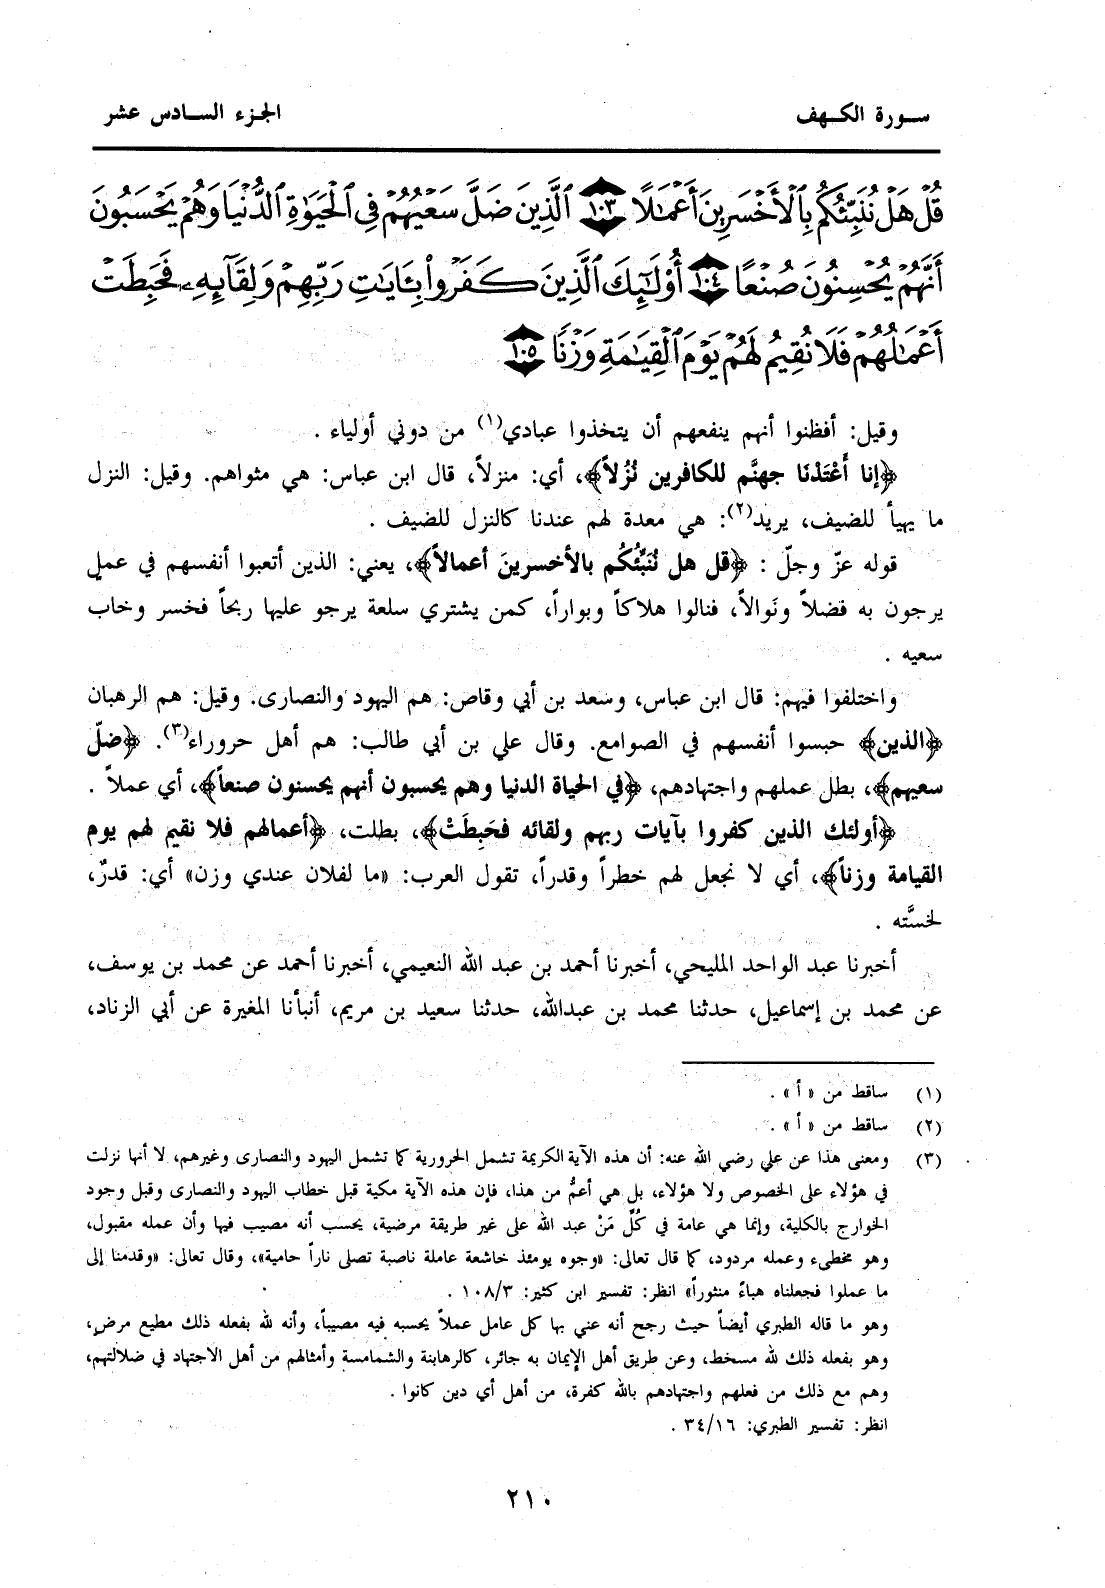 سورة الكهف
الجزء السادس عشر
قُلْ هَلْ نُنَبِّئُكُم بِالْأَخْسَرِينَ أَعْمَالًا ١٠٣ الَّذِينَ ضَلَّ سَعْيُهُمْ فِي الْحَيَوٰةِ الدُّنْيَا وَهُمْ يَحْسَبُونَ
أَنَّهُمْ يُحْسِنُونَ صُنْعًا ١٠٤ أُوْلَٰئِكَ الَّذِينَ كَفَرُوا بِـَٔايَٰتِ رَبِّهِمْ وَلِقَآئِهِۦ فَحَبِطَتْ
أَعْمَٰلُهُمْ فَلَا نُقِيمُ لَهُمْ يَوْمَ الْقِيَٰمَةِ وَزْنًا ١٠٥
وقيل: أفظنوا أنهم ينفعهم أن يتخذوا عبادي(١) من دوني أولياء .
﴿إنا أَعْتَدْنَا جهنَّم للكافرين نُزُلاً﴾، أي: منزلاً، قال ابن عباس: هي مثواهم. وقيل: النزل
ما يهيأ للضيف، يريد(٢): هي معدة لهم عندنا كالنزل للضيف .
قوله عزّ وجلّ : ﴿قل هل نُنَبِّئُكُم بالأخسرينَ أعمالاً﴾، يعني: الذين أتعبوا أنفسهم في عملٍ
يرجون به فضلاً ونَوالاً، فنالوا هلاكاً وبواراً، كمن يشتري سلعة يرجو عليها ربحاً فخسر وخاب
سعيه .
واختلفوا فيهم: قال ابن عباس، وسعد بن أبي وقاص: هم اليهود والنصارى. وقيل: هم الرهبان
﴿الذين﴾ حبسوا أنفسهم في الصوامع. وقال علي بن أبي طالب: هم أهل حروراء(٣). ﴿ضلّ
سعيهم﴾، بطل عملهم واجتهادهم، ﴿في الحياة الدنيا وهم يحسبون أنهم يحسنون صنعاً﴾، أي عملاً .
﴿أولئك الذين كفروا بآيات ربهم ولقائه فحَبِطَتْ﴾، بطلت، ﴿أعمالهم فلا نقيم لهم يوم
القيامة وزناً﴾، أي لا نجعل لهم خطراً وقدراً، تقول العرب: «ما لفلان عندي وزن» أي: قدرٌ،
لخسَّته .
أخبرنا عبد الواحد المليحي، أخبرنا أحمد بن عبد الله النعيمي، أخبرنا أحمد عن محمد بن يوسف،
عن محمد بن إسماعيل، حدثنا محمد بن عبدالله، حدثنا سعيد بن مريم، أنبأنا المغيرة عن أبي الزناد،
(١) ساقط من « أ » .
(٢) ساقط من « أ » .
(٣) ومعنى هذا عن علي رضي الله عنه: أن هذه الآية الكريمة تشمل الحرورية كما تشمل اليهود والنصارى وغيرهم، لا أنها نزلت
في هؤلاء على الخصوص ولا هؤلاء، بل هي أعمُّ من هذا، فإن هذه الآية مكية قبل خطاب اليهود والنصارى وقبل وجود
الخوارج بالكلية، وإنما هي عامة في كُلِّ مَنْ عبد الله على غير طريقة مرضية، يحسب أنه مصيب فيها وأن عمله مقبول،
وهو مخطىء وعمله مردود، كما قال تعالى: «وجوه يومئذ خاشعة عاملة ناصبة تصلى ناراً حامية»، وقال تعالى: «وقدمنا إلى
ما عملوا فجعلناه هباءً منثوراً» انظر: تفسير ابن كثير: ١٠٨/٣ .
وهو ما قاله الطبري أيضاً حيث رجح أنه عني بها كل عامل عملاً يحسبه فيه مصيباً، وأنه لله بفعله ذلك مطيع مرضٍ،
وهو بفعله ذلك لله مسخط، وعن طريق أهل الإيمان به جائر، كالرهابنة والشمامسة وأمثالهم من أهل الاجتهاد في ضلالتهم،
وهم مع ذلك من فعلهم واجتهادهم بالله كفرة، من أهل أي دين كانوا .
انظر: تفسير الطبري: ٣٤/١٦ .
٢١٠